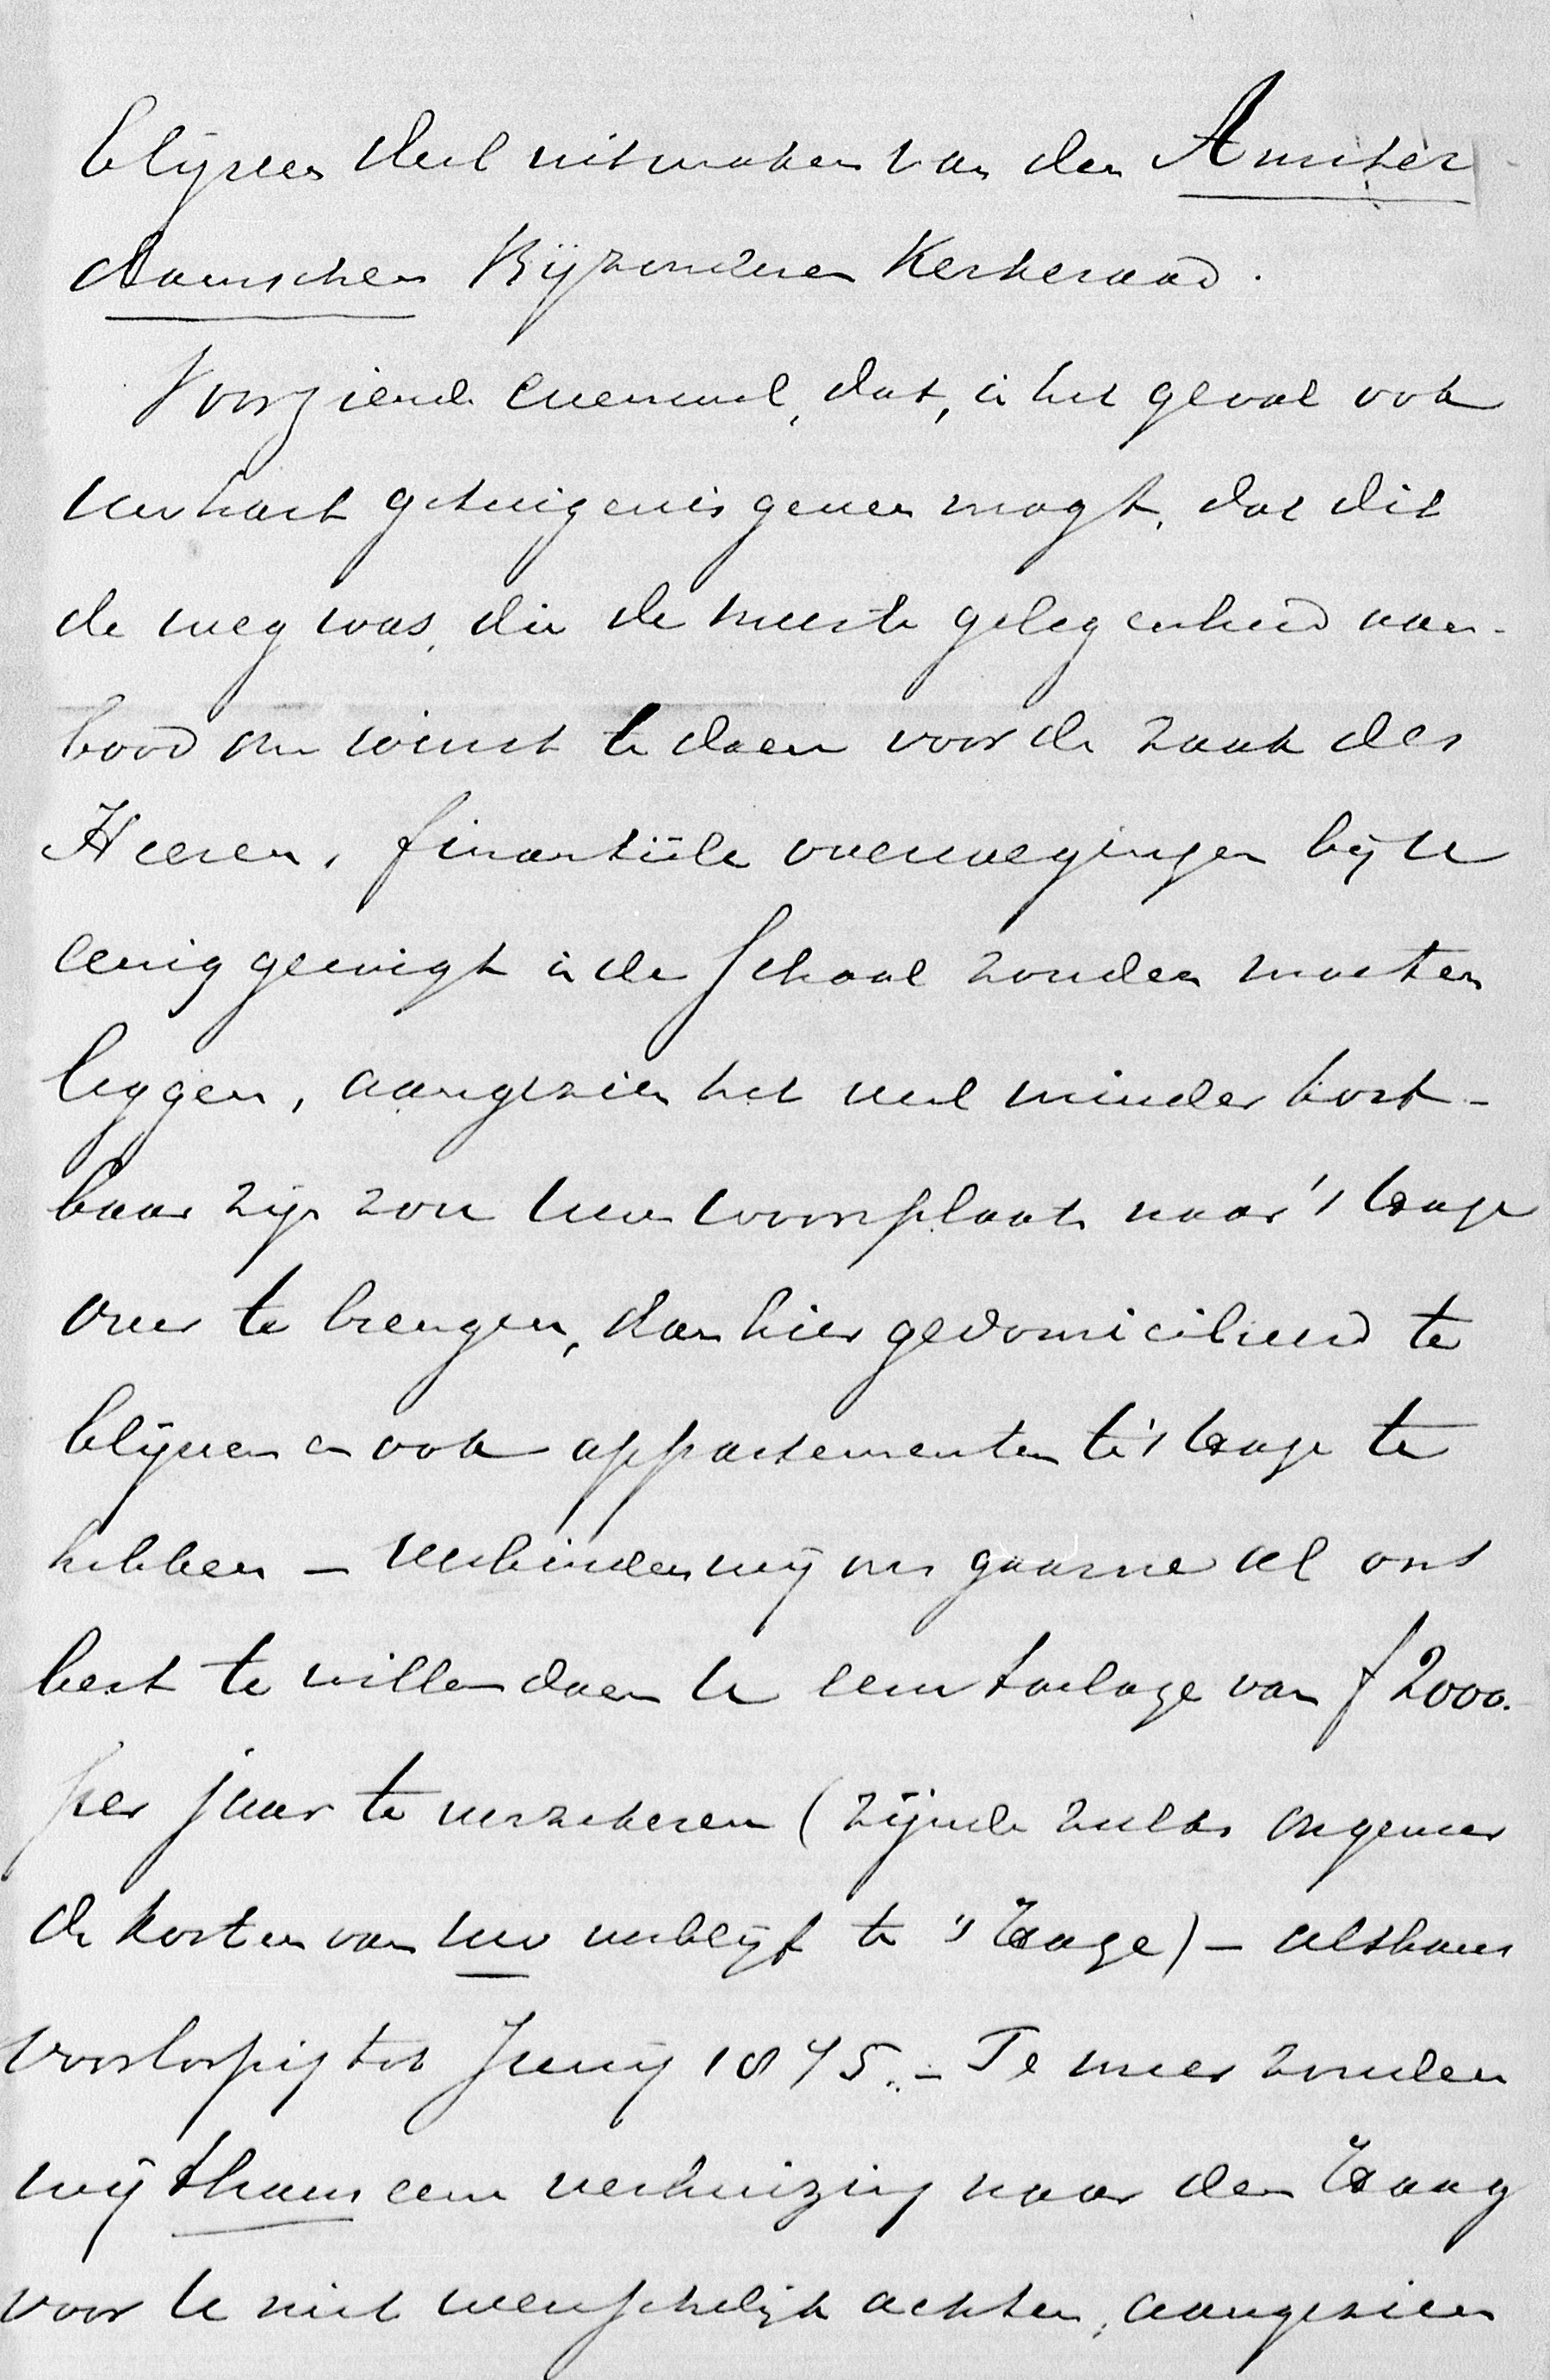 blijven deel uitmaken van den Amster
damschen Bijzonderen Kerkeraad.
Voorziende evenwel, dat, in het geval ook
uw hart getuigenis geven mogt, dat dit
de weg was, die de meeste gelegenheid aan-
bood om winst te doen voor de zaak des
Heeren, finantiële overwegingen bij u
eenig gewigt in de schaal zouden moeten
leggen, aangezien het veel minder kost-
baar zijn zou uw woonplaats naar 's Hage
over te brengen, dan hier gedomicilieerd te
blijven en ook appartementen te 's Hage te
hebben – verbinden wij ons gaarne al ons
best te willen doen u eene toelage van f 2000.
per jaar te verzekeren (zijnde zulks ongeveer
de kosten van uw verblijf te 's Hage) – althans
voorloopig tot Junij 1875. – Te meer zouden
wij thans eene verhuizing naar den Haag
voor u niet wenschelijk achten, aangezien